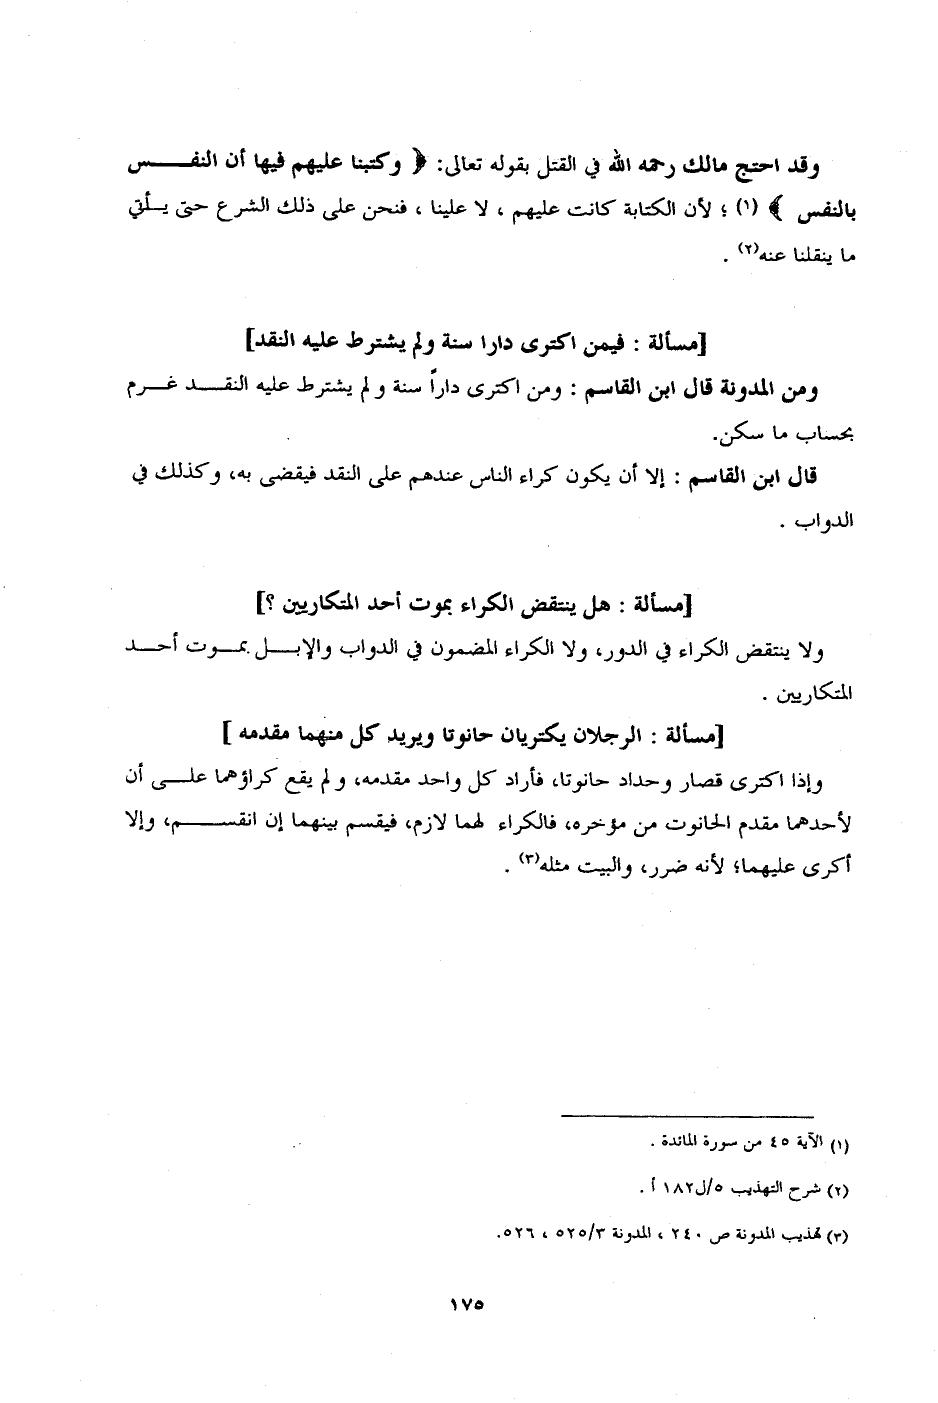 وقد احتج مالك رحمه الله في القتل بقوله تعالى: ﴿ وكتبنا عليهم فيها أن النفس
بالنفس ﴾ (١) ؛ لأن الكتابة كانت عليهم ، لا علينا ، فنحن على ذلك الشرع حتى يأتي
ما ينقلنا عنه(٢) .
[مسألة : فيمن اكترى دارا سنة ولم يشترط عليه النقد]
ومن المدونة قال ابن القاسم : ومن اكترى داراً سنة ولم يشترط عليه النقد غرم
بحساب ما سكن.
قال ابن القاسم : إلا أن يكون كراء الناس عندهم على النقد فيقضى به، وكذلك في
الدواب .
[مسألة : هل ينتقض الكراء بموت أحد المتكاريين ؟]
ولا ينتقض الكراء في الدور، ولا الكراء المضمون في الدواب والإبل بموت أحد
المتكاريين .
[مسألة : الرجلان يكتريان حانوتا ويريد كل منهما مقدمه ]
وإذا اكترى قصار وحداد حانوتا، فأراد كل واحد مقدمه، ولم يقع كراؤهما على أن
لأحدهما مقدم الحانوت من مؤخره، فالكراء لهما لازم، فيقسم بينهما إن انقسم، وإلا
أكرى عليهما؛ لأنه ضرر، والبيت مثله(٣) .
(١) الآية ٤٥ من سورة المائدة .
(٢) شرح التهذيب ٥/ل١٨٢ أ .
(٣) تهذيب المدونة ص ٢٤٠ ، المدونة ٥٢٥/٣ ، ٥٢٦.
١٧٥